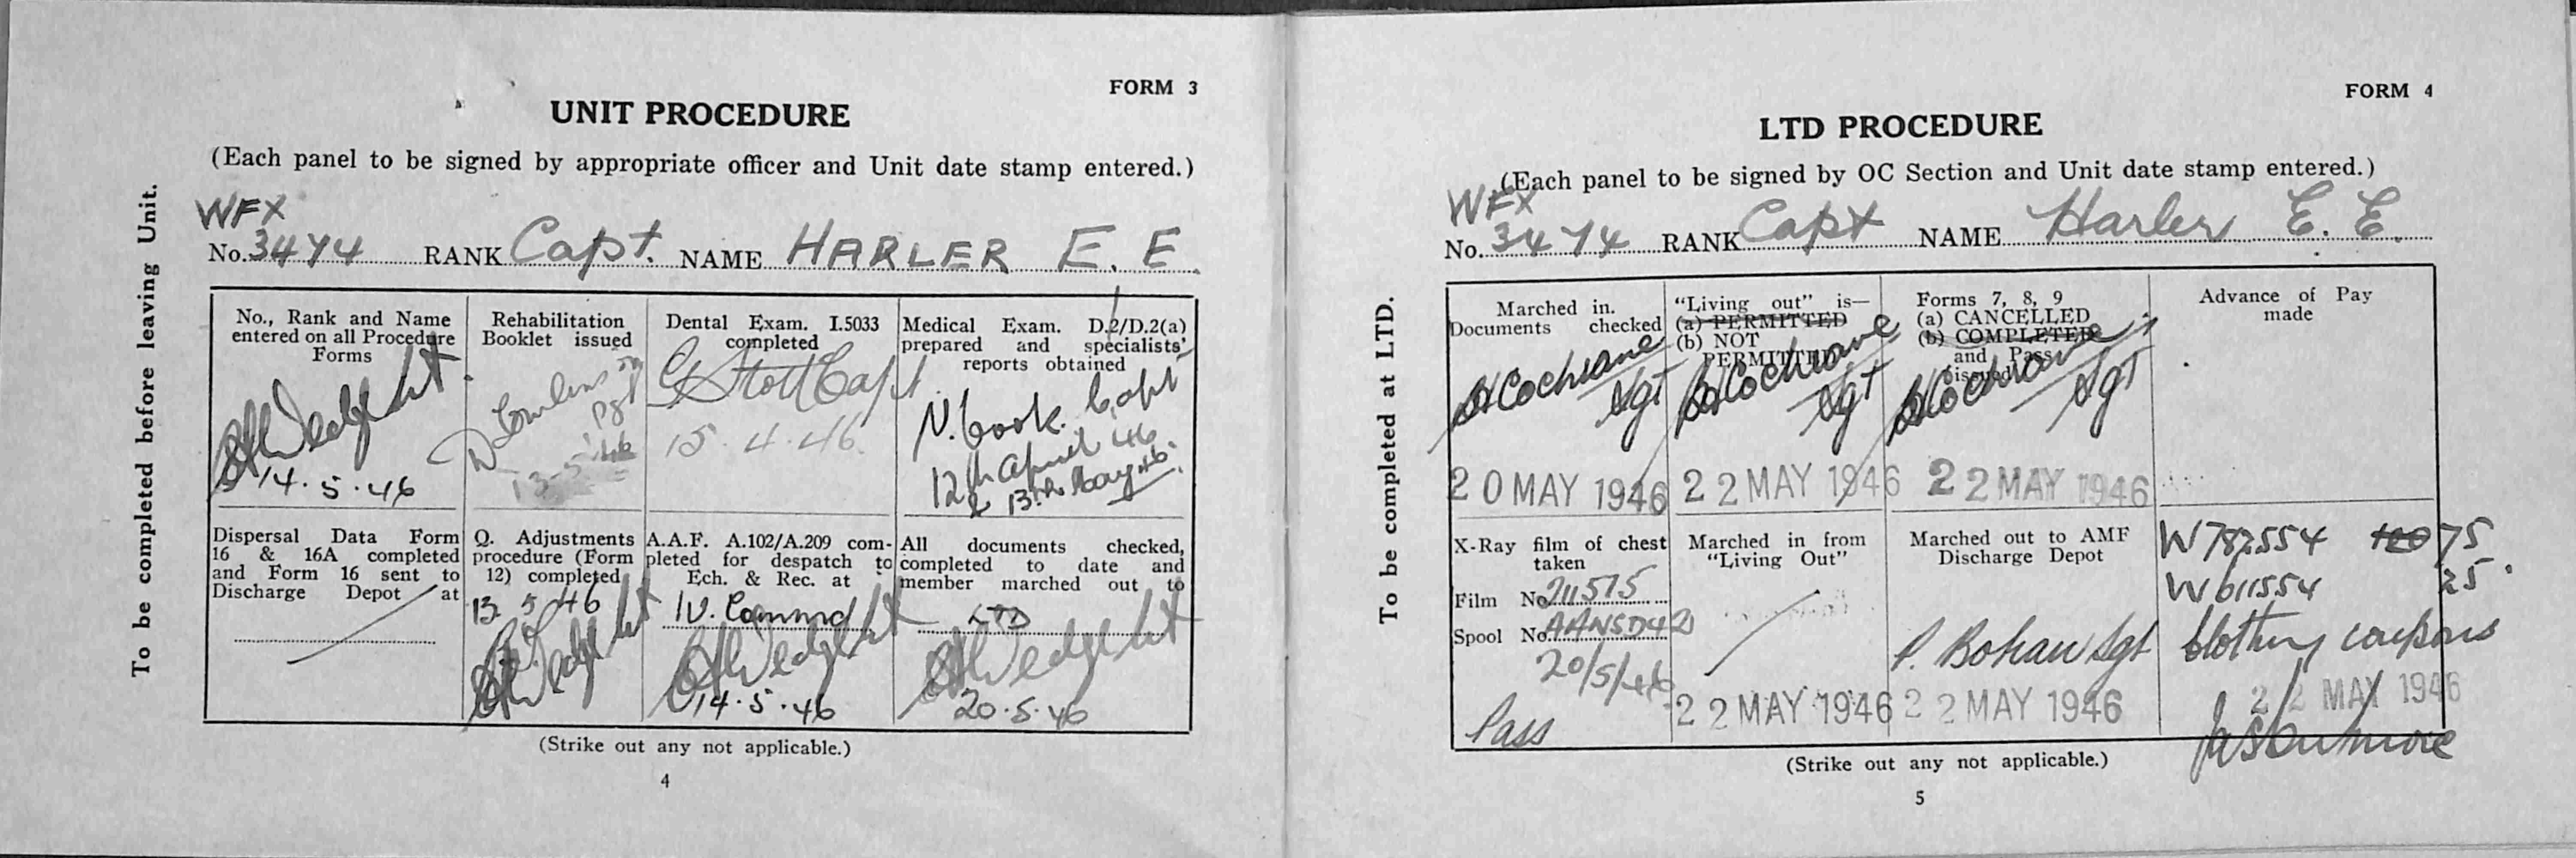 FORM 3
UNIT PROCEDURE
(Each panel to be signed by appropriate officer and Unit date stamp entered.)
To be completed before leaving Unit.
WFX
No. 3474 RANK Capt. NAME HARLER E. E
No., Rank and Name
entered on all Procedure
Forms
Lt
14.5.46
Rehabilitation
Booklet issued
Sgt
13-5-46
Dental Exam. I.5033
completed
Stott Capt
15.4.46
Medical Exam. D.2/D.2(a)
prepared and specialists'
reports obtained
N. Cook. Capt
12th April 46
& 13th May 46.
Dispersal Data Form
16 & 16A completed
and Form 16 sent to
Discharge Depot at
Q. Adjustments
procedure (Form
12) completed
13.5.46
Lt
A.A.F. A.102/A.209 com-
pleted for despatch to
Ech. & Rec. at
W. Commd
Lt
14.5.46
All documents checked,
completed to date and
member marched out to
LTD
Lt
20.5.46
(Strike out any not applicable.)
4
FORM 4
LTD PROCEDURE
(Each panel to be signed by OC Section and Unit date stamp entered.)
To be completed at LTD.
WFX
No. 3474 RANK Capt NAME Harler E. E.
Marched in.
Documents checked
Cochrane
Sgt
20 MAY 1946
"Living out" is—
(a) PERMITTED
(b) NOT
PERMITTED
Cochrane
Sgt
22 MAY 1946
Forms 7, 8, 9
(a) CANCELLED
(b) COMPLETED
and Pass
issued
Cochrane
Sgt
22 MAY 1946
Advance of Pay
made
X-Ray film of chest
taken
Film No. 211575
Spool No. AANSD42
20/5/46
Pass
Marched in from
"Living Out"
22 MAY 1946
Marched out to AMF
Discharge Depot
P. Bohan Sgt
22 MAY 1946
W782554 120 75
W611554 25
Clothing coupons
22 MAY 1946
(Strike out any not applicable.)
5